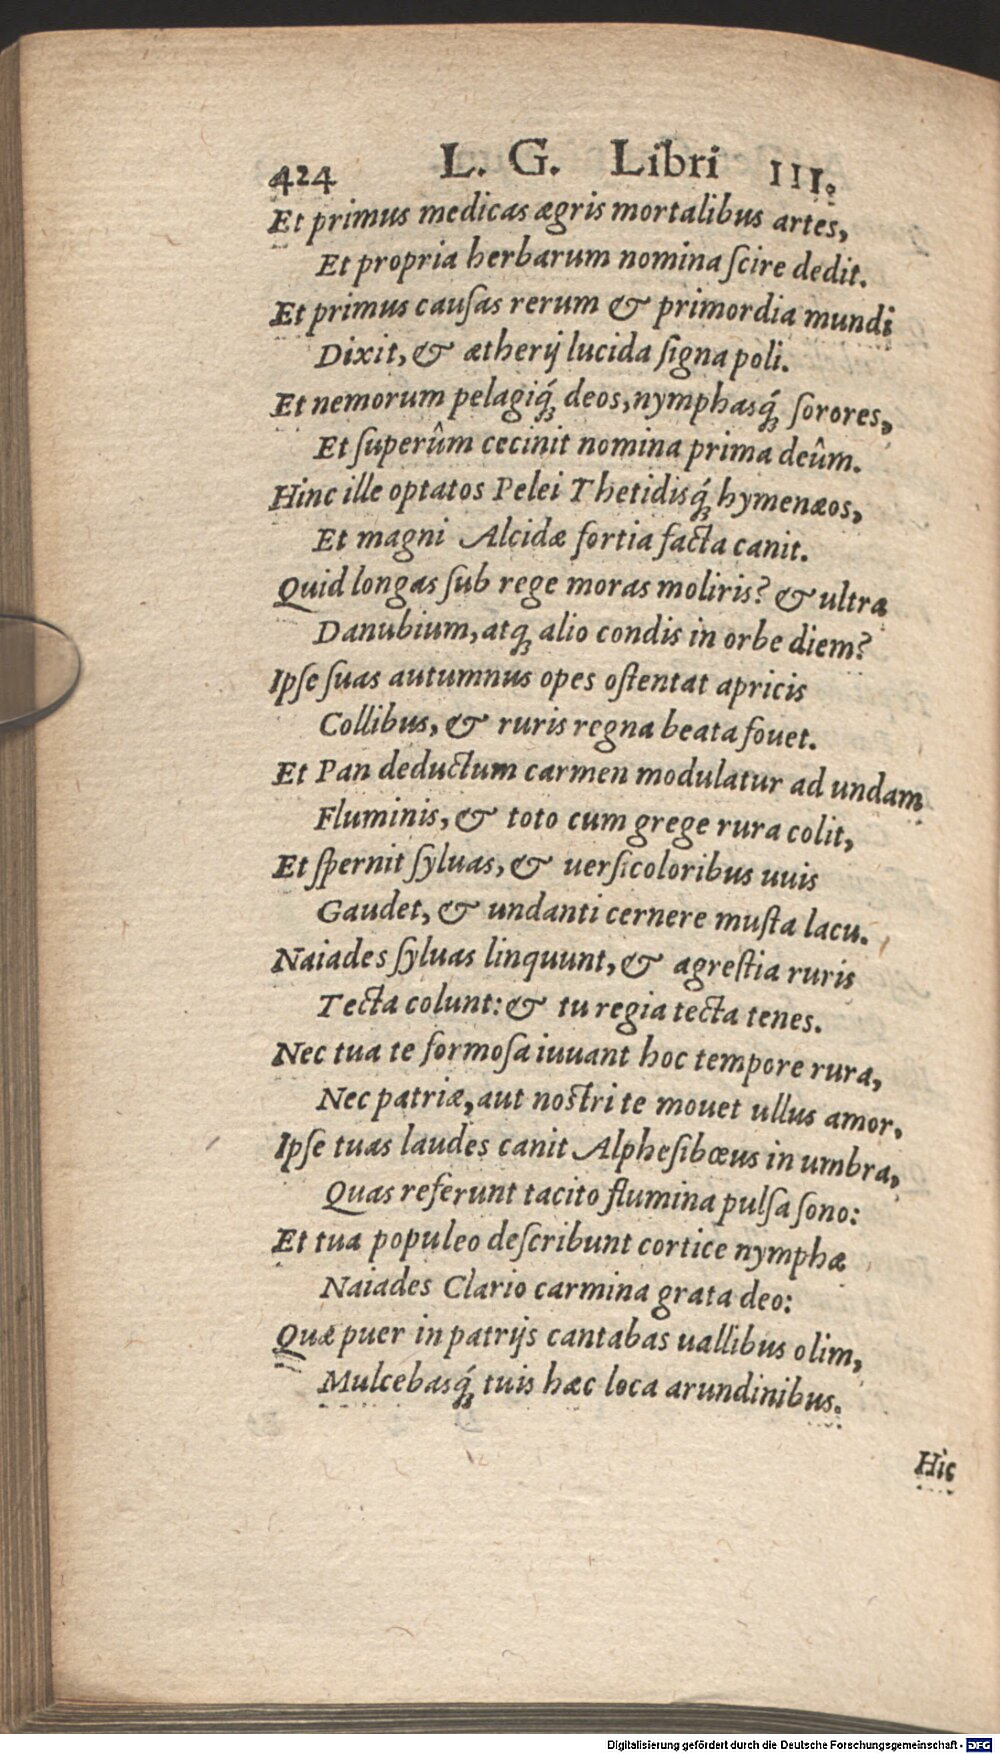 424 L. G. Libri III.
Et primus medicas ægris mortalibus artes,
Et propria herbarum nomina ſcire dedit.
Et primus cauſas rerum & primordia mundi
Dixit, & ætherij lucida ſigna poli.
Et nemorum pelagiq́; deos, nymphasq́; ſorores,
Et ſuperûm cecinit nomina prima deûm.
Hinc ille optatos Pelei Thetidisq́; hymenæos,
Et magni Alcidæ fortia facta canit.
Quid longas ſub rege moras moliris? & ultra
Danubium, atq; alio condis in orbe diem?
Ipſe ſuas autumnus opes oſtentat apricis
Collibus, & ruris regna beata fouet.
Et Pan deductum carmen modulatur ad undam
Fluminis, & toto cum grege rura colit,
Et ſpernit ſyluas, & uerſicoloribus uuis
Gaudet, & undanti cernere muſta lacu.
Naiades ſyluas linquunt, & agreſtia ruris
Tecta colunt: & tu regia tecta tenes.
Nec tua te formoſa iuuant hoc tempore rura,
Nec patriæ, aut noſtri te mouet ullus amor.
Ipſe tuas laudes canit Alpheſibœus in umbra,
Quas referunt tacito flumina pulſa ſono:
Et tua populeo deſcribunt cortice nymphæ
Naiades Clario carmina grata deo:
Quæ puer in patrijs cantabas uallibus olim,
Mulcebasq́; tuis hæc loca arundinibus.
Hic
Digitalisierung gefördert durch die Deutsche Forschungsgemeinschaft - DFG